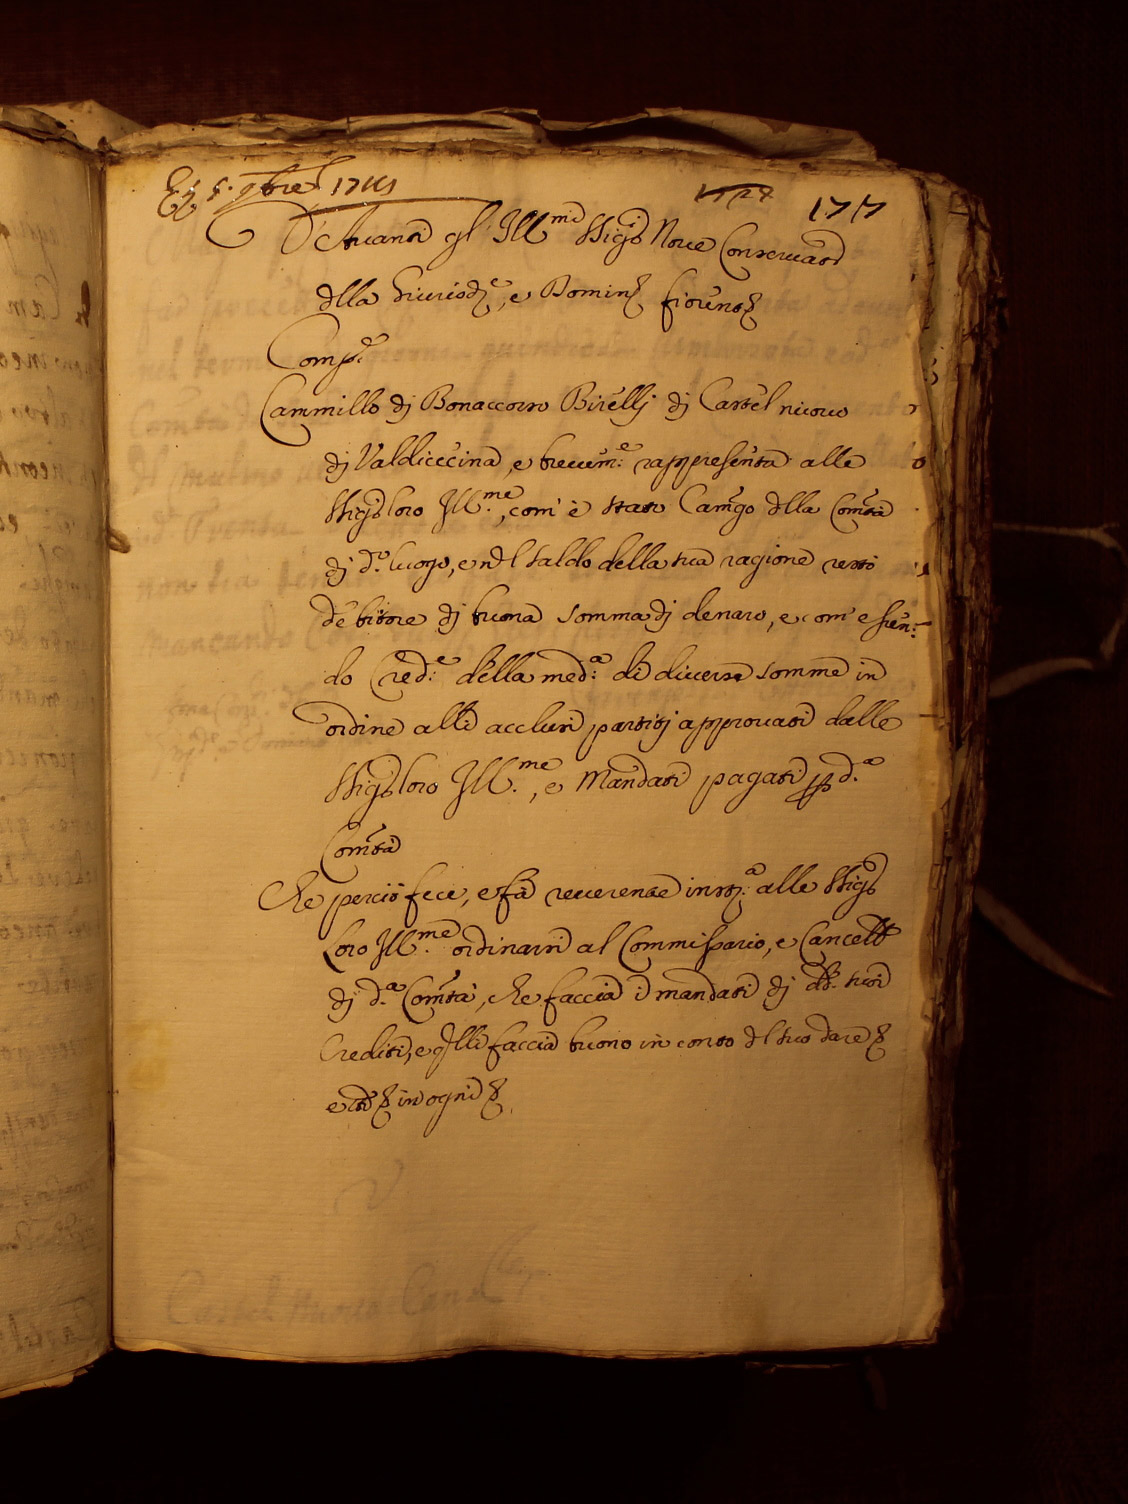 1717
D'Avanti gl' Ill.mi Sig.i Nove Conservatori
della Giurisd.e, e Domin. fiorent.
Comp.e
Cammillo dj Bonaccorso Birellj dj Castel nuovo
dj Valdicecina, e brevem.e rappresenta alle
Sig. loro Ill.me, com' è stato Camgo della Comtà
dj d.o luogo, e nel saldo della sua ragione restò
debitore dj buona somma dj denaro, e com' essen:
do Cred.e della med.a di diverse somme in
ordine alli acclusi partitj approvati dalle
Sig. loro Ill.me, e Mandati pagati p d.a
Comtà
Che perciò fece, e fà reverente inst.a alle Sig.
Loro Ill.me ordinarsi al Commissario, e Cancell
dj d.a Comtà, che faccia i mandati dj dd. suoi
Crediti, e glli faccia buono in conto del suo dare
e in ogni